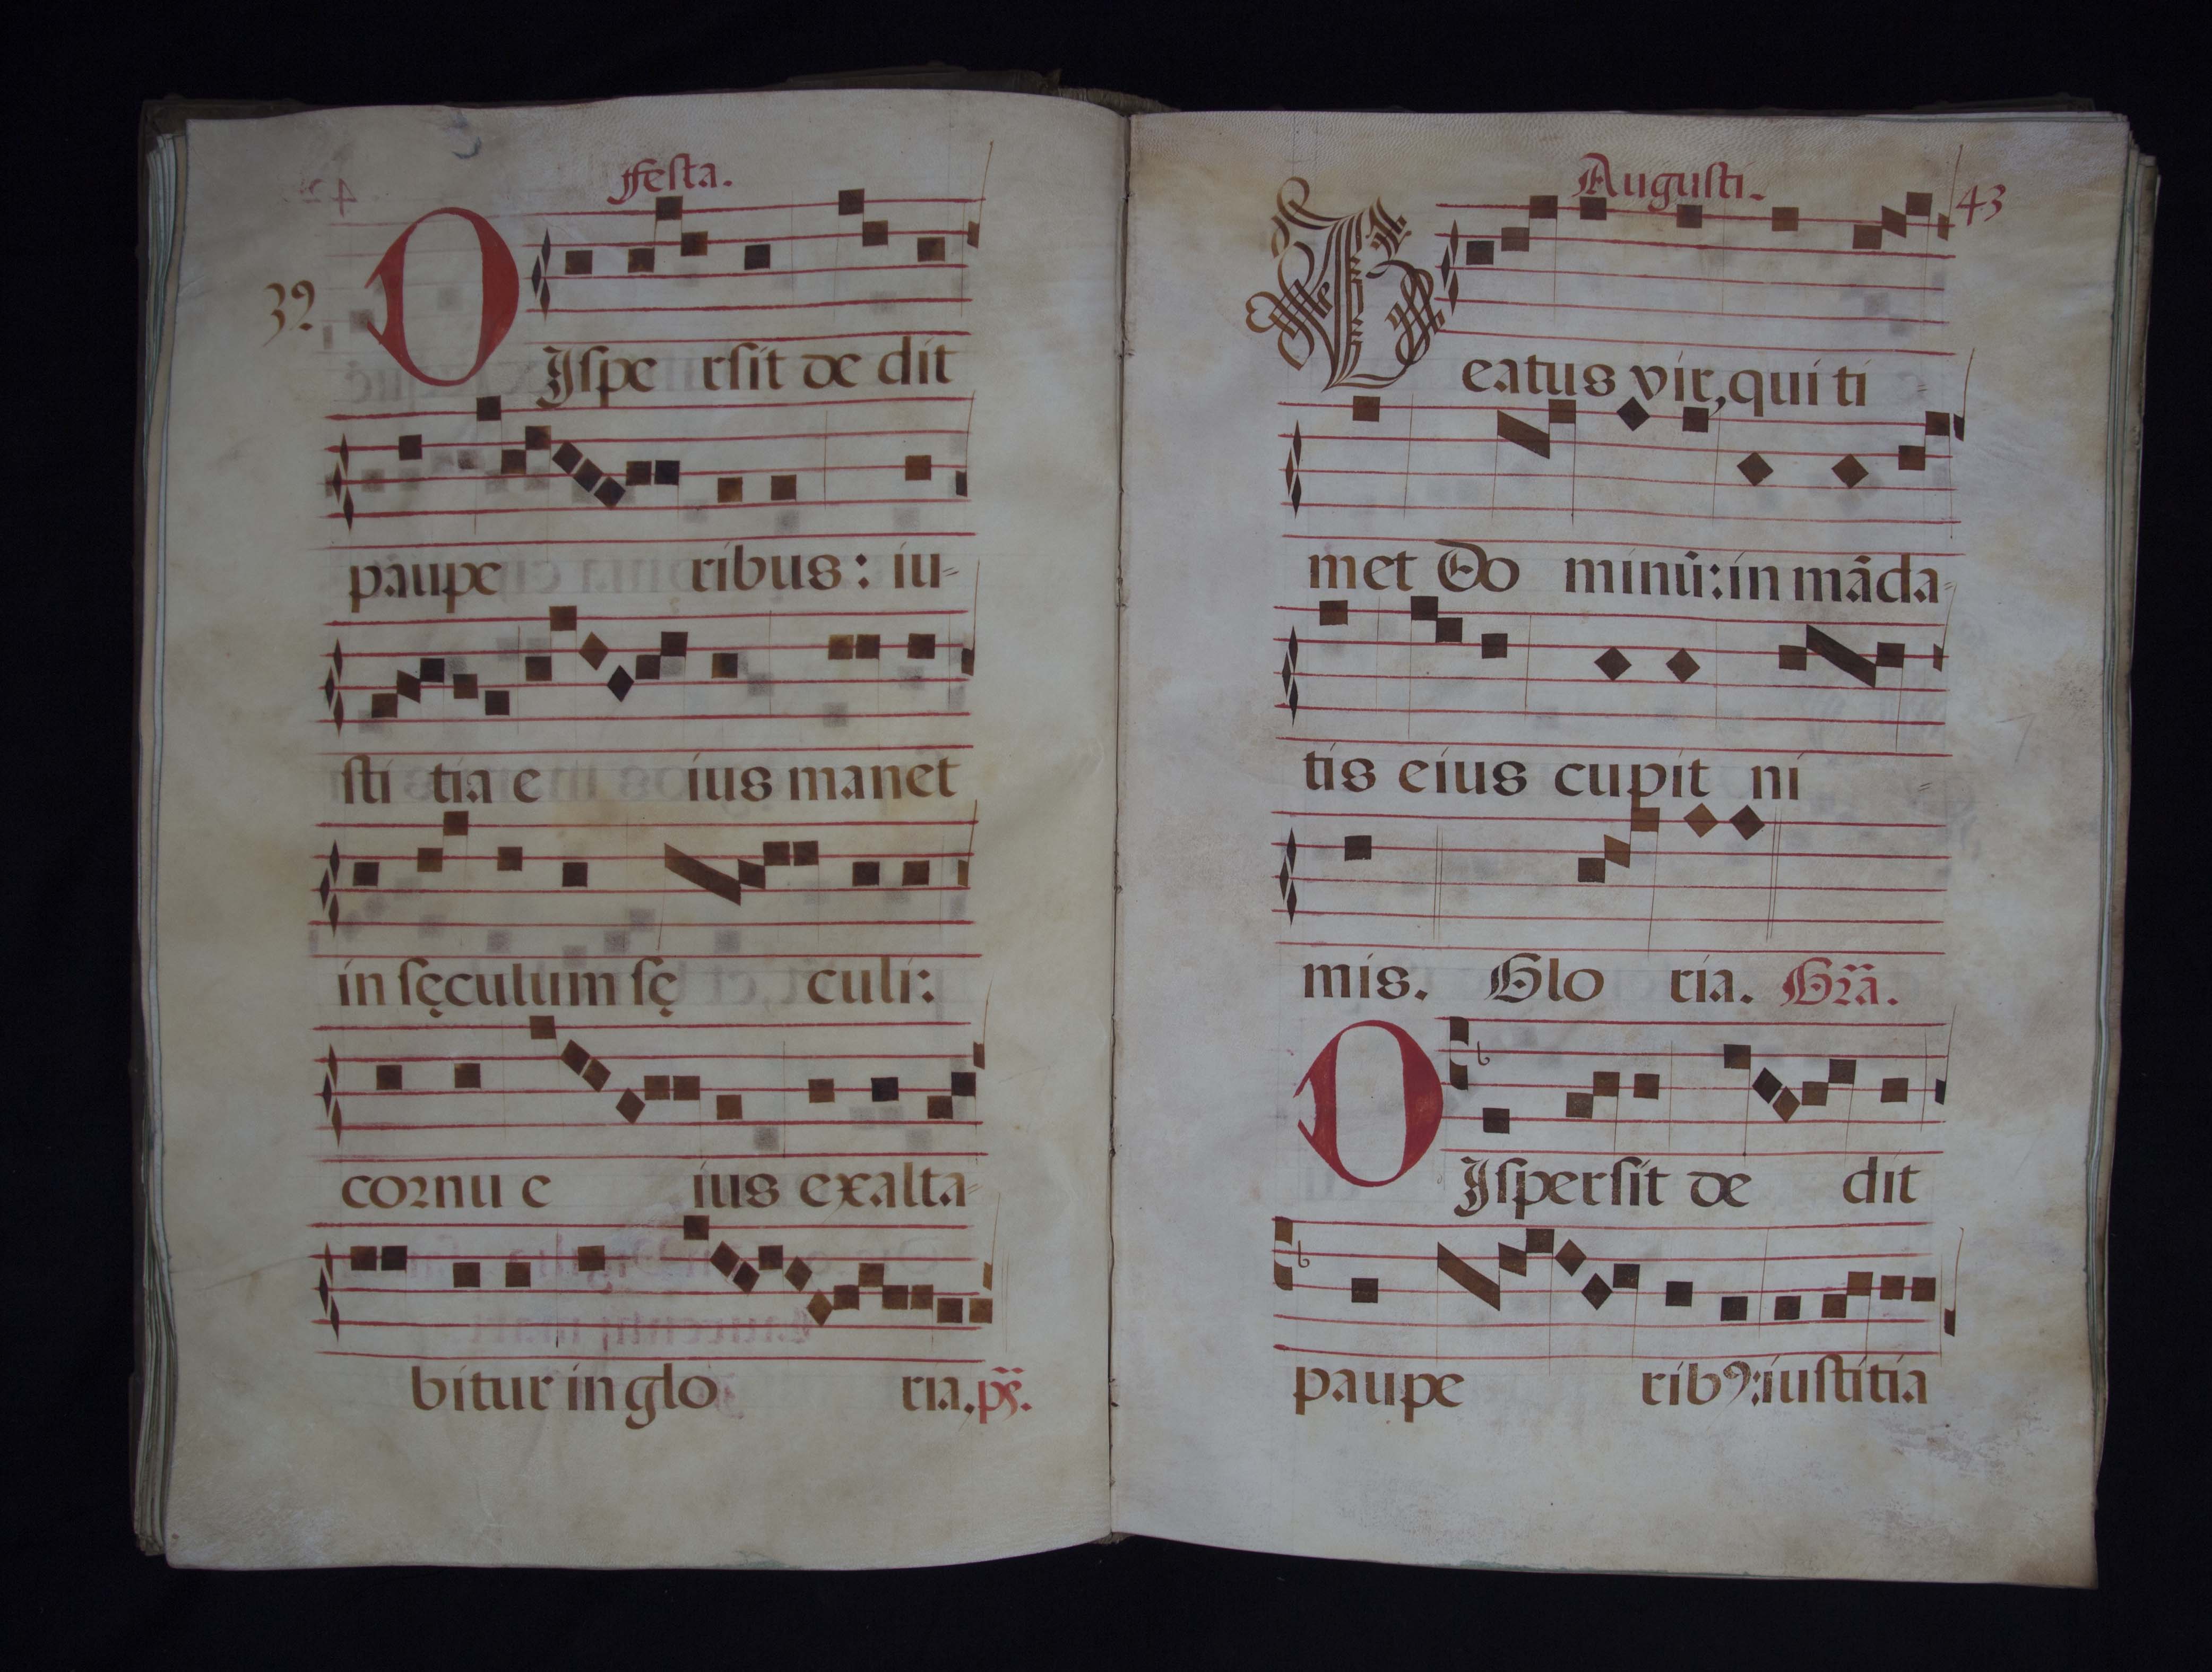 Festa.
32
DIspe rsit de dit
paupe ribus: iu-
sti tia e ius manet
in sęculum sę culi:
cornu e ius exalta-
bitur in glo ria. ps̃.
Augusti.
43
Beatus vir, qui ti-
met Do minũ: in mãda-
tis eius cupit ni-
mis. Glo ria. Gr̃a.
DIspersit de dit
paupe rib9: iustitia